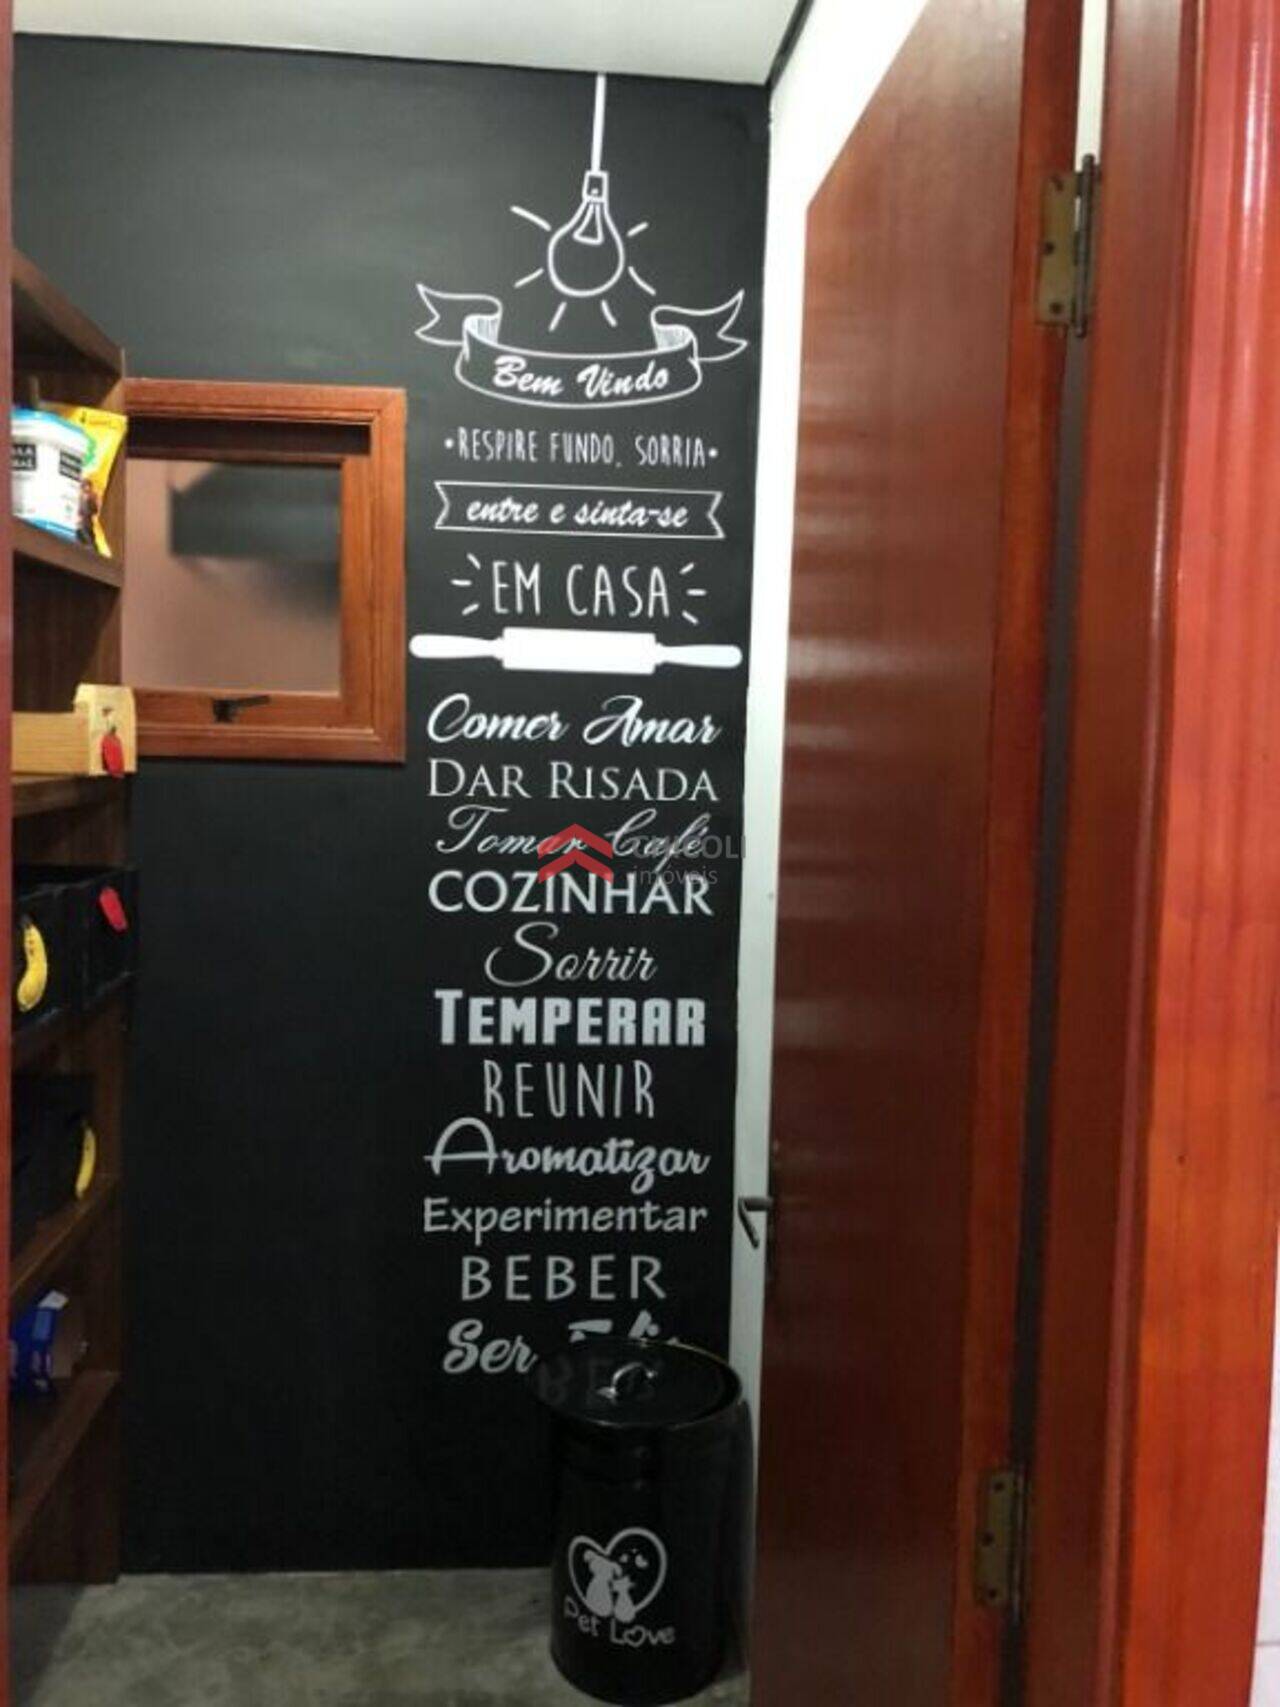 Bem Vindo
•RESPIRE FUNDO, SORRIA•
entre e sinta-se
EM CASA
Comer Amar
DAR RISADA
Tomar Café
imóveis
COZINHAR
Sorrir
TEMPERAR
REUNIR
Aromatizar
Experimentar
BEBER
Ser
Pet Love